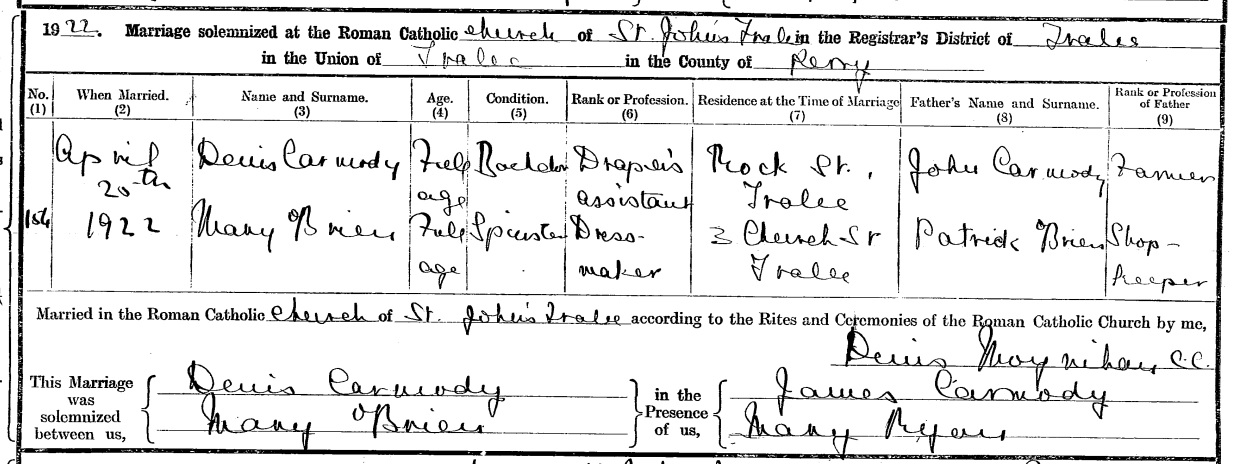 1922. Marriage solemnized at the Roman Catholic Church of St. John's Tralee in the Registrar's District of Tralee
in the Union of Tralee in the County of Kerry
No. (1) When Married. (2) Name and Surname. (3) Age. (4) Condition. (5) Rank or Profession. (6) Residence at the Time of Marriage (7) Father's Name and Surname. (8) Rank or Profession of Father (9)
April 20th Denis Carmody Full age Bachelor Draper's assistant Rock St., Tralee John Carmody Farmer
156 1922 Mary O'Brien Full age Spinster Dress-maker 3 Church St Tralee Patrick O'Brien Shop-keeper
Married in the Roman Catholic Church of St. John's Tralee according to the Rites and Ceremonies of the Roman Catholic Church by me,
Denis Moynihan, C.C.
This Marriage was solemnized between us, Denis Carmody in the Presence of us, James Carmody
Mary O'Brien Mary Ryan